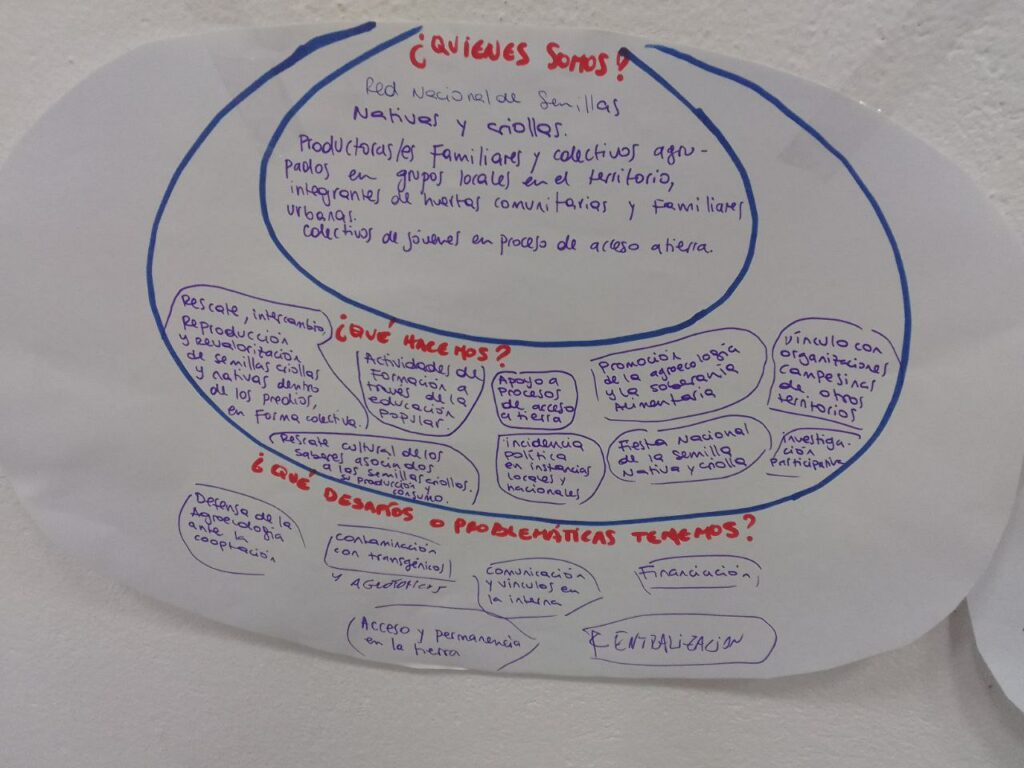 ¿QUIENES SOMOS?
Red Nacional de Semillas
Nativas y criollas.
Productoras/es Familiares y colectivos agru-
pados en grupos locales en el territorio,
integrantes de huertas comunitarias y familiares
urbanas.
colectivos de jóvenes en proceso de acceso a tierra.
¿QUÉ HACEMOS?
Rescate, intercambio,
Reproducción
y revalorización
de semillas criollas
y nativas dentro
de los predios,
en forma colectiva.
Actividades de
Formación a
través de la
educación
popular.
Apoyo a
Procesos
de acceso
a tierra
Promoción
de la agroecología
y la soberanía
Alimentaria
vínculo con
organizaciones
campesinas
de otros
territorios
Rescate cultural de los
saberes asociados
a las semillas criollas.
su producción y
consumo.
incidencia
política
en instancias
locales y
nacionales
Fiesta Nacional
de la semilla
Nativa y criolla
Investiga-
ción
Participativa
¿QUÉ DESAFÍOS O PROBLEMÁTICAS TENEMOS?
Defensa de la
Agroecología
ante la
cooptación
contaminación
con transgénicos
y AGROTÓXICOS
comunicación
y vínculos en
la interna
Financiación
Acceso y permanencia
en la tierra
CENTRALIZACION